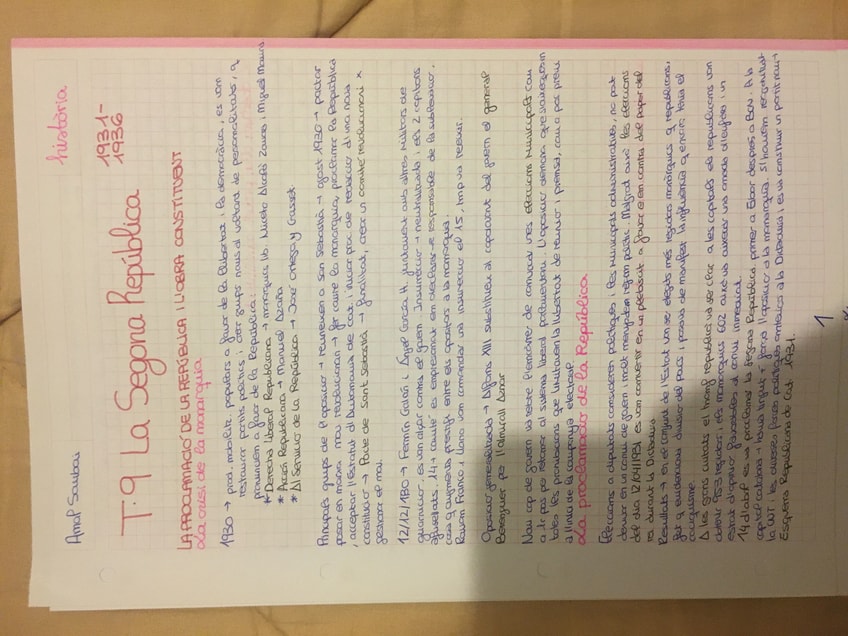 Amal Sambou
història
T:9 La Segona República 1931-1936
LA PROCLAMACIÓ DE LA REPÚBLICA I L'OBRA CONSTITUENT
La crisi de la monarquia
1930 → prod. mobilitz. populars a favor de la llibertat i la democràcia, es van
restaurar partits polítics i crear grups nous al voltant de personalitats, q
pronuncien a favor de la República.
* Derecha Liberal Republicana → monàrquics lib. Niceto Alcalá Zamora i Miguel Maura
* Acción Republicana → Manuel Azaña
* Al Servicio de la República → José Ortega y Gasset
Principals grups de l'oposició → reuneixen a San Sebastià → agost 1930 → pactar
posar en marxa mov. revolucionari → fer caure la monarquia, proclamar la República
i acceptar l'Estatut d'Autonomia de Cat. iniciar proc de redacció d'una nova
constitució → Pacte de Sant Sebastià → finalitat, crear un comitè revolucionari x
gestionar el mov.
12/12/1930 → Fermín Galán i Ángel García H. juntament amb altres militars de
guarnició, es van alçar contra el govern. Insurrecció → neutralitzada, els 2 capitans
afusellats. 14 → comitè es empresonat en declarar-se responsable de la sublevació.
cosa q augmenta prestigi entre els opositors a la monarquia.
Ramon Franco i Llano van comandar una insurrecció el 15, tmp va reeixir.
Oposició generalitzada → Alfons XIII substitueix al capdavant del govern el general
Berenguer per l'almirall Aznar
Nou cap de govern va rebre l'encàrrec de convocar unes eleccions municipals com
a 1r pas per retornar al sistema liberal parlamentari. L'oposició demana que s'aixequessin
totes les prohibicions que limitaven la llibertat de reunió i premsa, com a pas previ
a l'inici de la campanya electoral
La proclamació de la República
Eleccions a diputats consideren polítiques i les municipals administratives, no pot
derivar en un canvi de govern i molt menys d'un règim polític. Malgrat això les eleccions
del dia 12/04/1931 es van convertir en un plebiscit a favor o en contra del paper del
rei durant la Dictadura
Resultats → en el conjunt de l'Estat van ser elegits més regidors monàrquics q republicans,
fet q evidencia divisió del país i posava de manifest la influència q encara tenia el
caciquisme.
A les grans ciutats el triomf republicà va ser clar. a les capitals els republicans van
obtenir 953 regidors i els monàrquics 602 això va suscitar una onada d'eufòria i un
estat d'opinió favorable al canvi immediat.
14 d'abril es va proclamar la Segona República, primer a Eibar després a BCN. A la
capital catalana → havia tingut + força l'oposició a la monarquia. S'havien reorganitzat
la UGT i les diverses forces polítiques anteriors a la Dictadura i es va constituir un partit nou →
Esquerra Republicana de Cat 1931.
1